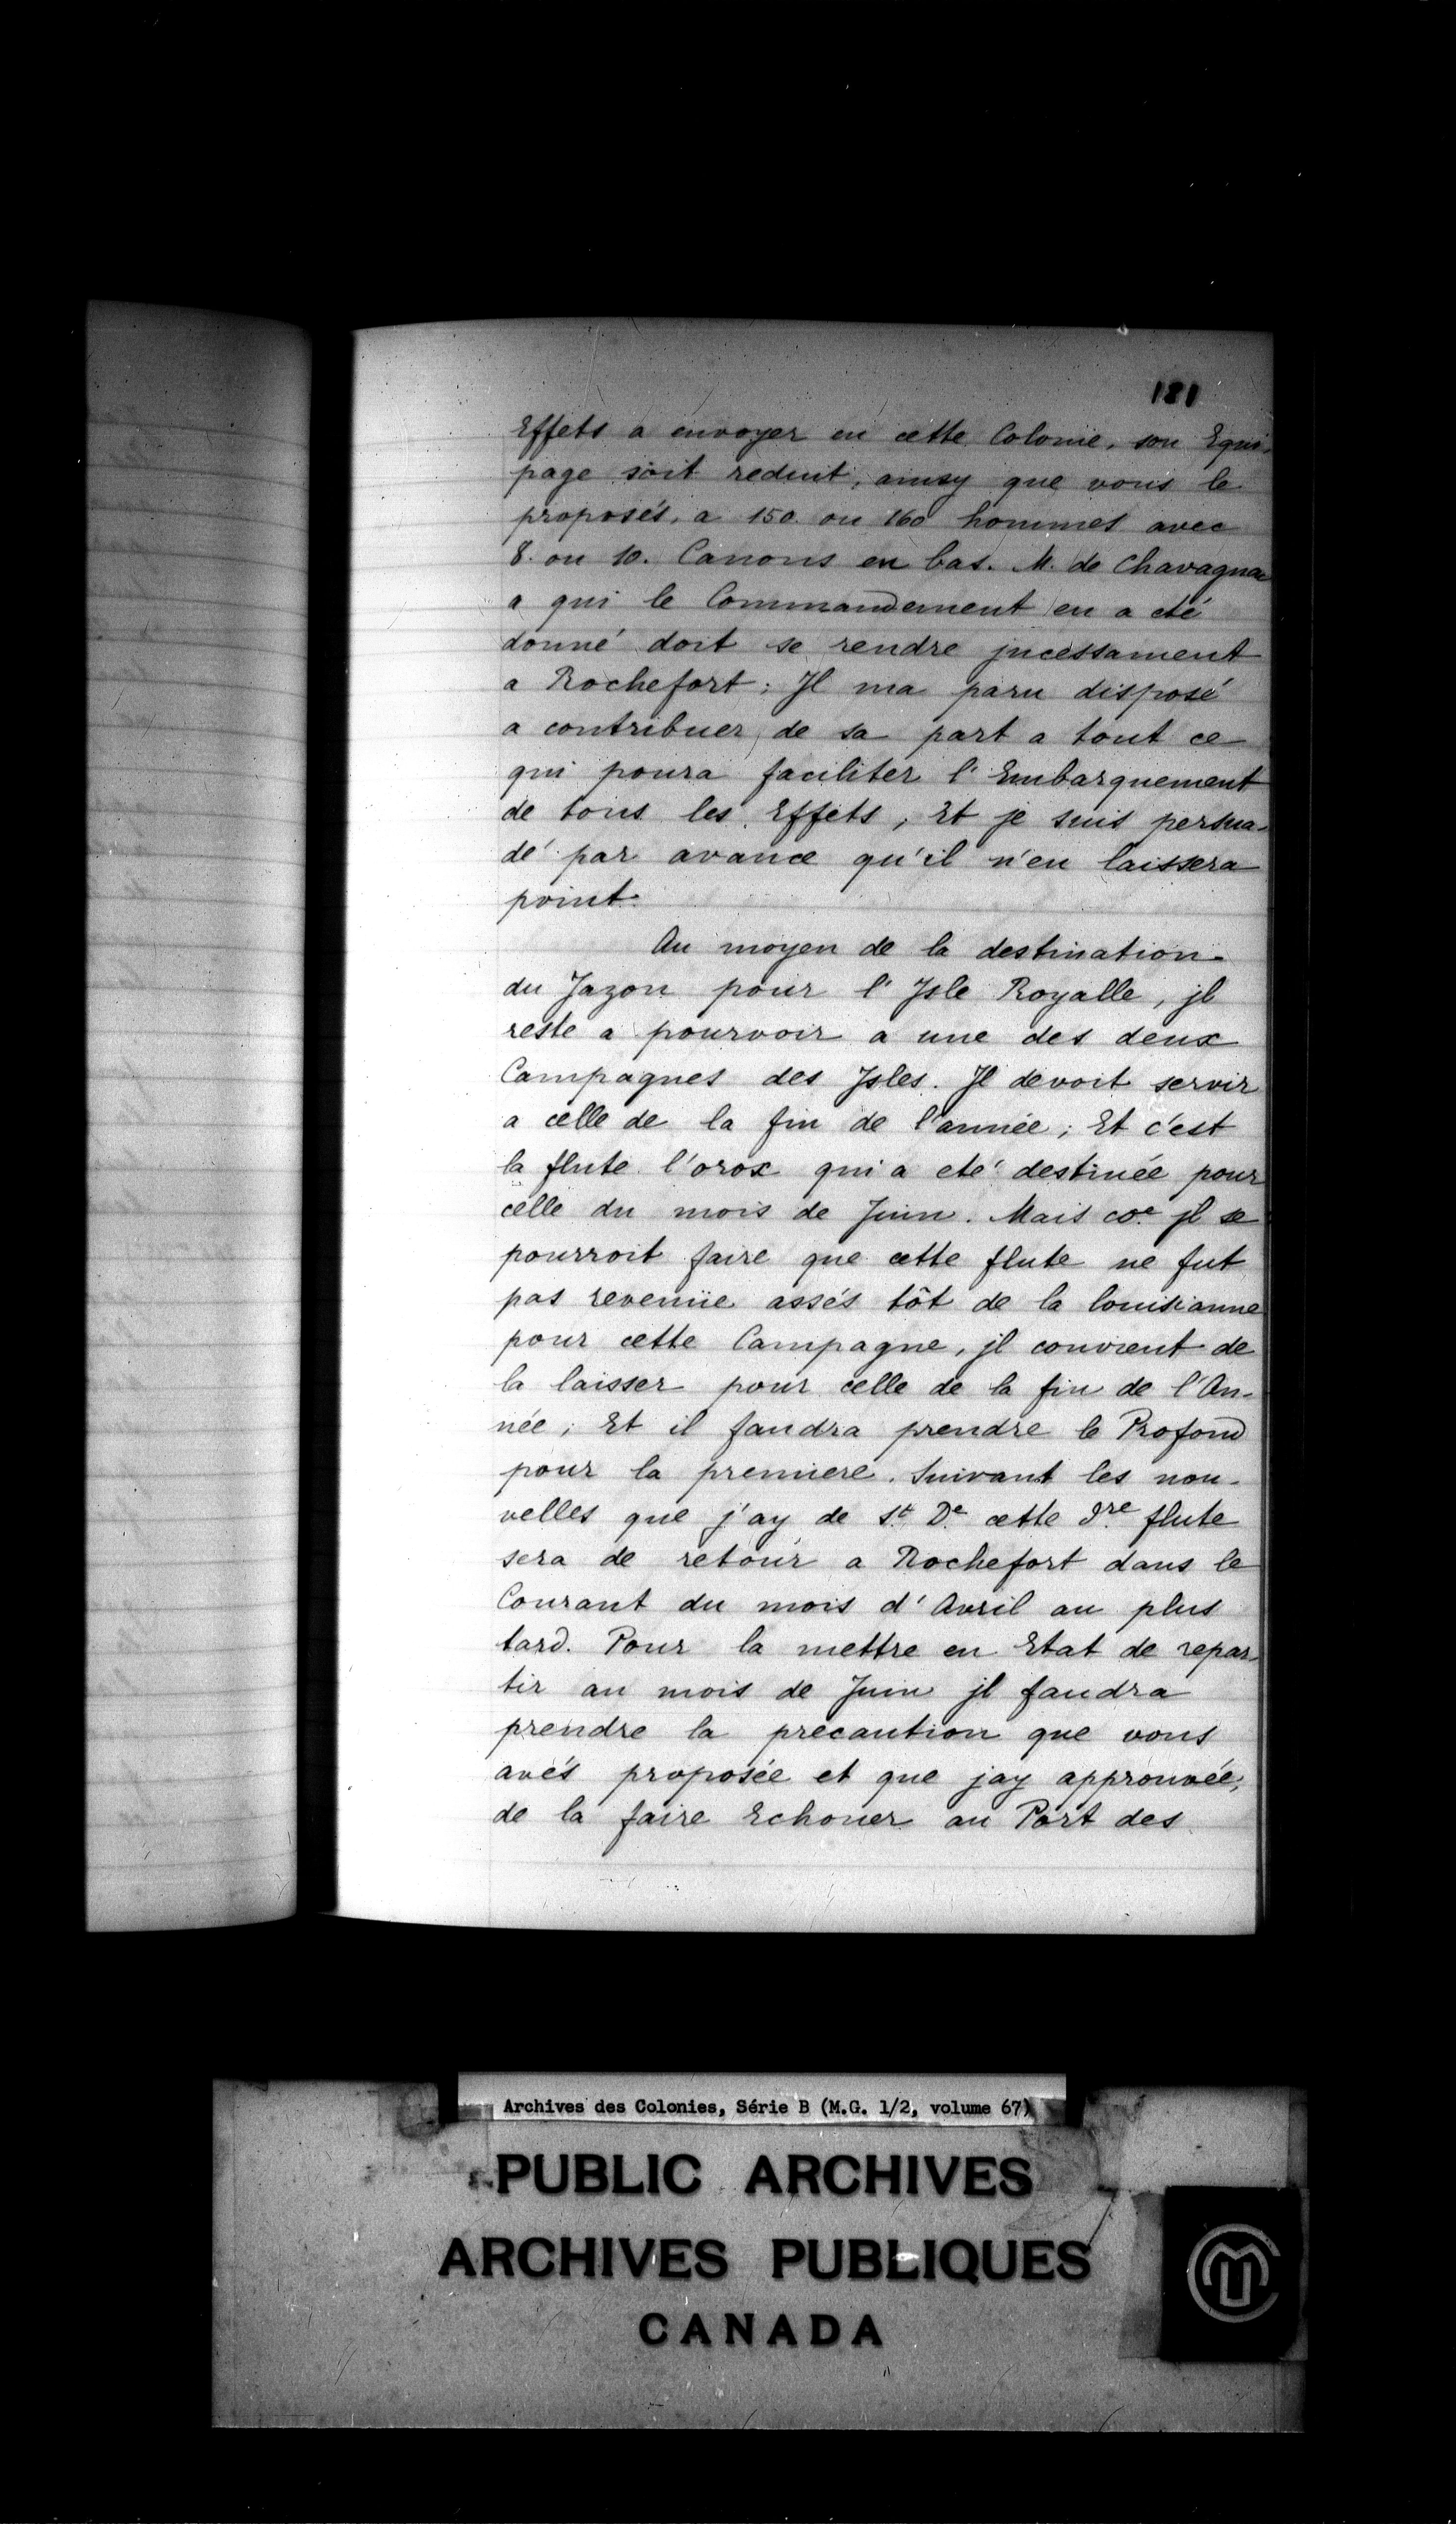 181
Effets a envoyer en cette Colonie, son Equi-
page soit reduit, ainsy que vous le
proposés, a 150 ou 160 hommes avec
8. ou 10. Canons en bas. M. de Chavagnac
a qui le Commandement en a eté
donné doit se rendre jncessament
a Rochefort; Jl ma paru disposé
a contribuer, de sa part a tout ce
qui poura faciliter l'Embarquement
de tous les Effets, Et je suis persua-
dé par avance qu'il n'en laissera
point.
Au moyen de la destination
du Jazon pour l'Jsle Royalle, jl
reste a pourvoir a une des deux
Campagnes des Jsles. Jl devoit servir
a celle de la fin de l'année; Et c'est
la flute l'orox qui a eté destinée pour
celle du mois de Juin. Mais coe. jl se
pourroit faire que cette flute ne fut
pas revenüe assés tôt de la louisianne
pour cette Campagne, jl convient de
la laisser pour celle de la fin de l'An-
née; Et il faudra prendre le Profond
pour la premiere. Suivant les nou-
velles que j'ay de St. De. cette dre. flute
sera de retour a Rochefort dans le
Courant du mois d'Avril au plus
tard. Pour la mettre en Etat de repar-
tir au mois de Juin jl faudra
prendre la précaution que vous
avés proposée et que jay approuvée,
de la faire Echouer au Port des
Archives des Colonies, Série B (M.G. 1/2, volume 67)
PUBLIC ARCHIVES
ARCHIVES PUBLIQUES
CANADA